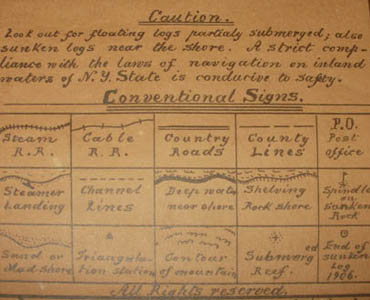 Caution.
Look out for floating logs partialy submerged; also
sunken logs near the shore. A strict comp-
liance with the laws of navigation on inland
waters of N.Y. State is conducive to safety.
Conventional Signs.
Steam
R.R.
Cable
R.R.
Country
Roads
County
Lines
P.O.
Post
office
Steamer
Landing
Channel
Lines
Deep water
near shore
Shelving
Rock shore
Spindle
on
Sunken
Rock
Sand or
Mud shore
Triangula-
tion station
Contour
of mountain
Submerg ed
Reef.
End of
sunken
Log
1906.
All Rights reserved.